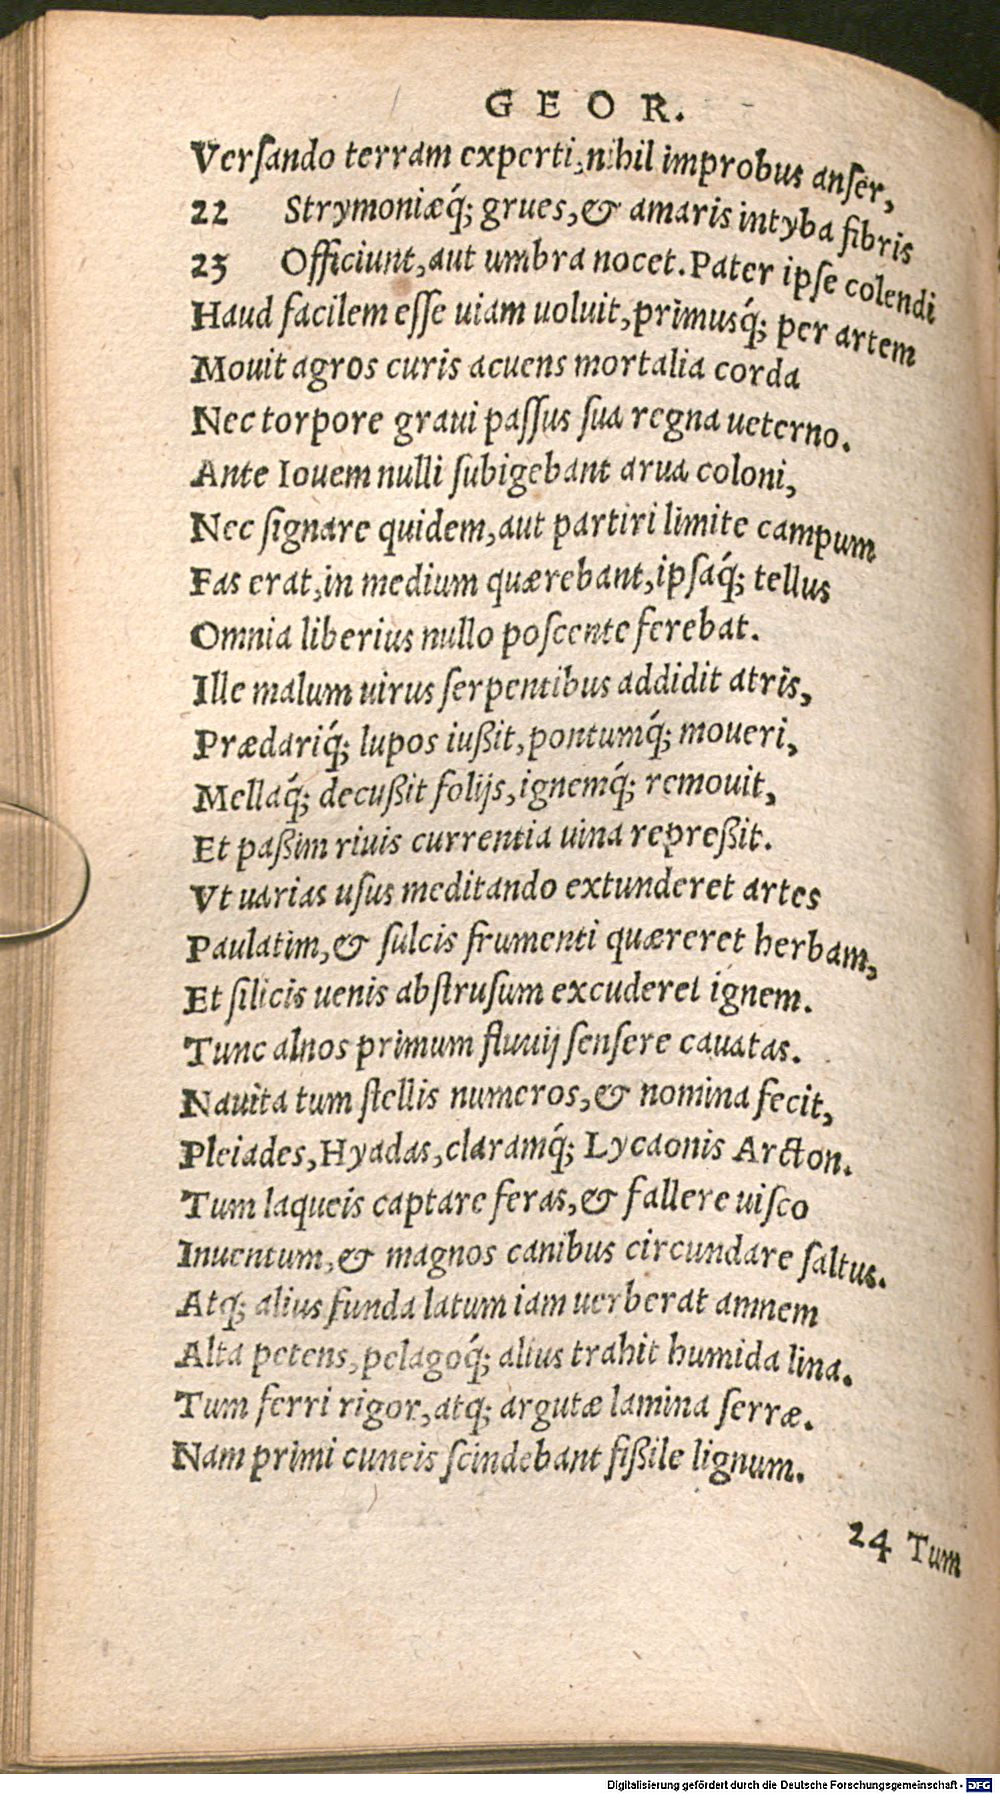 GEOR.
Verſando terram experti, nihil improbus anſer,
22 Strymoniæq́; grues, & amaris intyba fibris
23 Officiunt, aut umbra nocet. Pater ipſe colendi
Haud facilem eſſe uiam uoluit, primusq́; per artem
Mouit agros curis acuens mortalia corda
Nec torpore graui paſſus ſua regna ueterno.
Ante Iouem nulli ſubigebant arua coloni,
Nec ſignare quidem, aut partiri limite campum
Fas erat, in medium quærebant, ipſaq́; tellus
Omnia liberius nullo poſcente ferebat.
Ille malum uirus ſerpentibus addidit atris,
Prædariq́; lupos iußit, pontumq́; moueri,
Mellaq́; decußit folijs, ignemq́; remouit,
Et paßim riuis currentia uina repreßit.
Vt uarias uſus meditando extunderet artes
Paulatim, & ſulcis frumenti quæreret herbam,
Et ſilicis uenis abſtruſum excuderet ignem.
Tunc alnos primum fluuij ſenſere cauatas.
Nauita tum ſtellis numeros, & nomina fecit,
Pleiades, Hyadas, claramq́; Lycaonis Arcton.
Tum laqueis captare feras, & fallere uiſco
Inuentum, & magnos canibus circundare ſaltus.
Atq; alius funda latum iam uerberat amnem
Alta petens, pelagoq́; alius trahit humida lina.
Tum ferri rigor, atq; argutæ lamina ſerræ.
Nam primi cuneis ſcindebant fißile lignum.
24 Tum
Digitalisierung gefördert durch die Deutsche Forschungsgemeinschaft - DFG